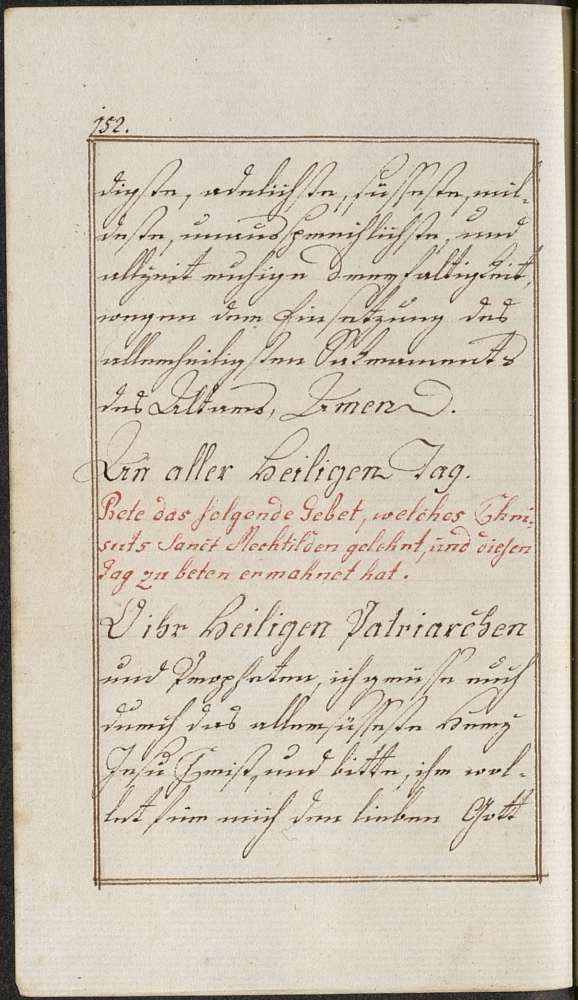 152.
digste, adelichste, süsseste, mil-
deste, unaussprechlichste, und
allzeit ruhige Dreyfaltigkeit,
wegen dem Einsetzung des
allerheiligsten Sakraments
des Altars, Amen.
An aller Heiligen Tag.
Bete das folgende Gebet, welches Chri-
stuts Sanct Mechtilden gelehrt, und diesen
Tag zu beten ermahnet hat.
O ihr Heiligen Patriarchen
und Propheten, ich grüsse euch
durch das allersüsseste Herz
Jesu Christ, und bitte, ihr wol-
let für mich dem lieben Gott